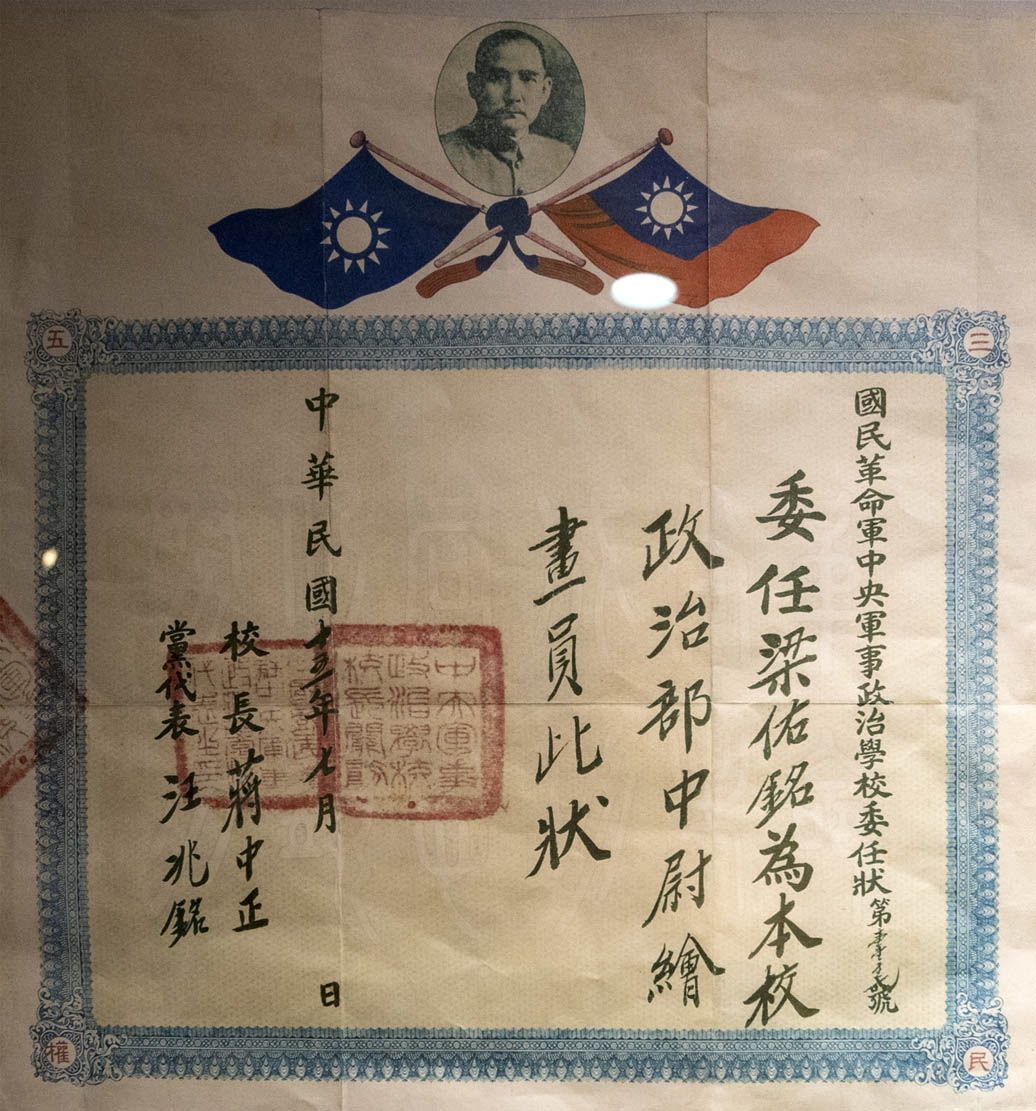 三
民
五
權
國民革命軍中央軍事政治學校委任狀第號
委任梁佑銘為本校
政治部中尉繪
畫員此狀
中華民國十五年七月 日
校長蔣中正
黨代表汪兆銘
中央軍事
政治學校
校長關防